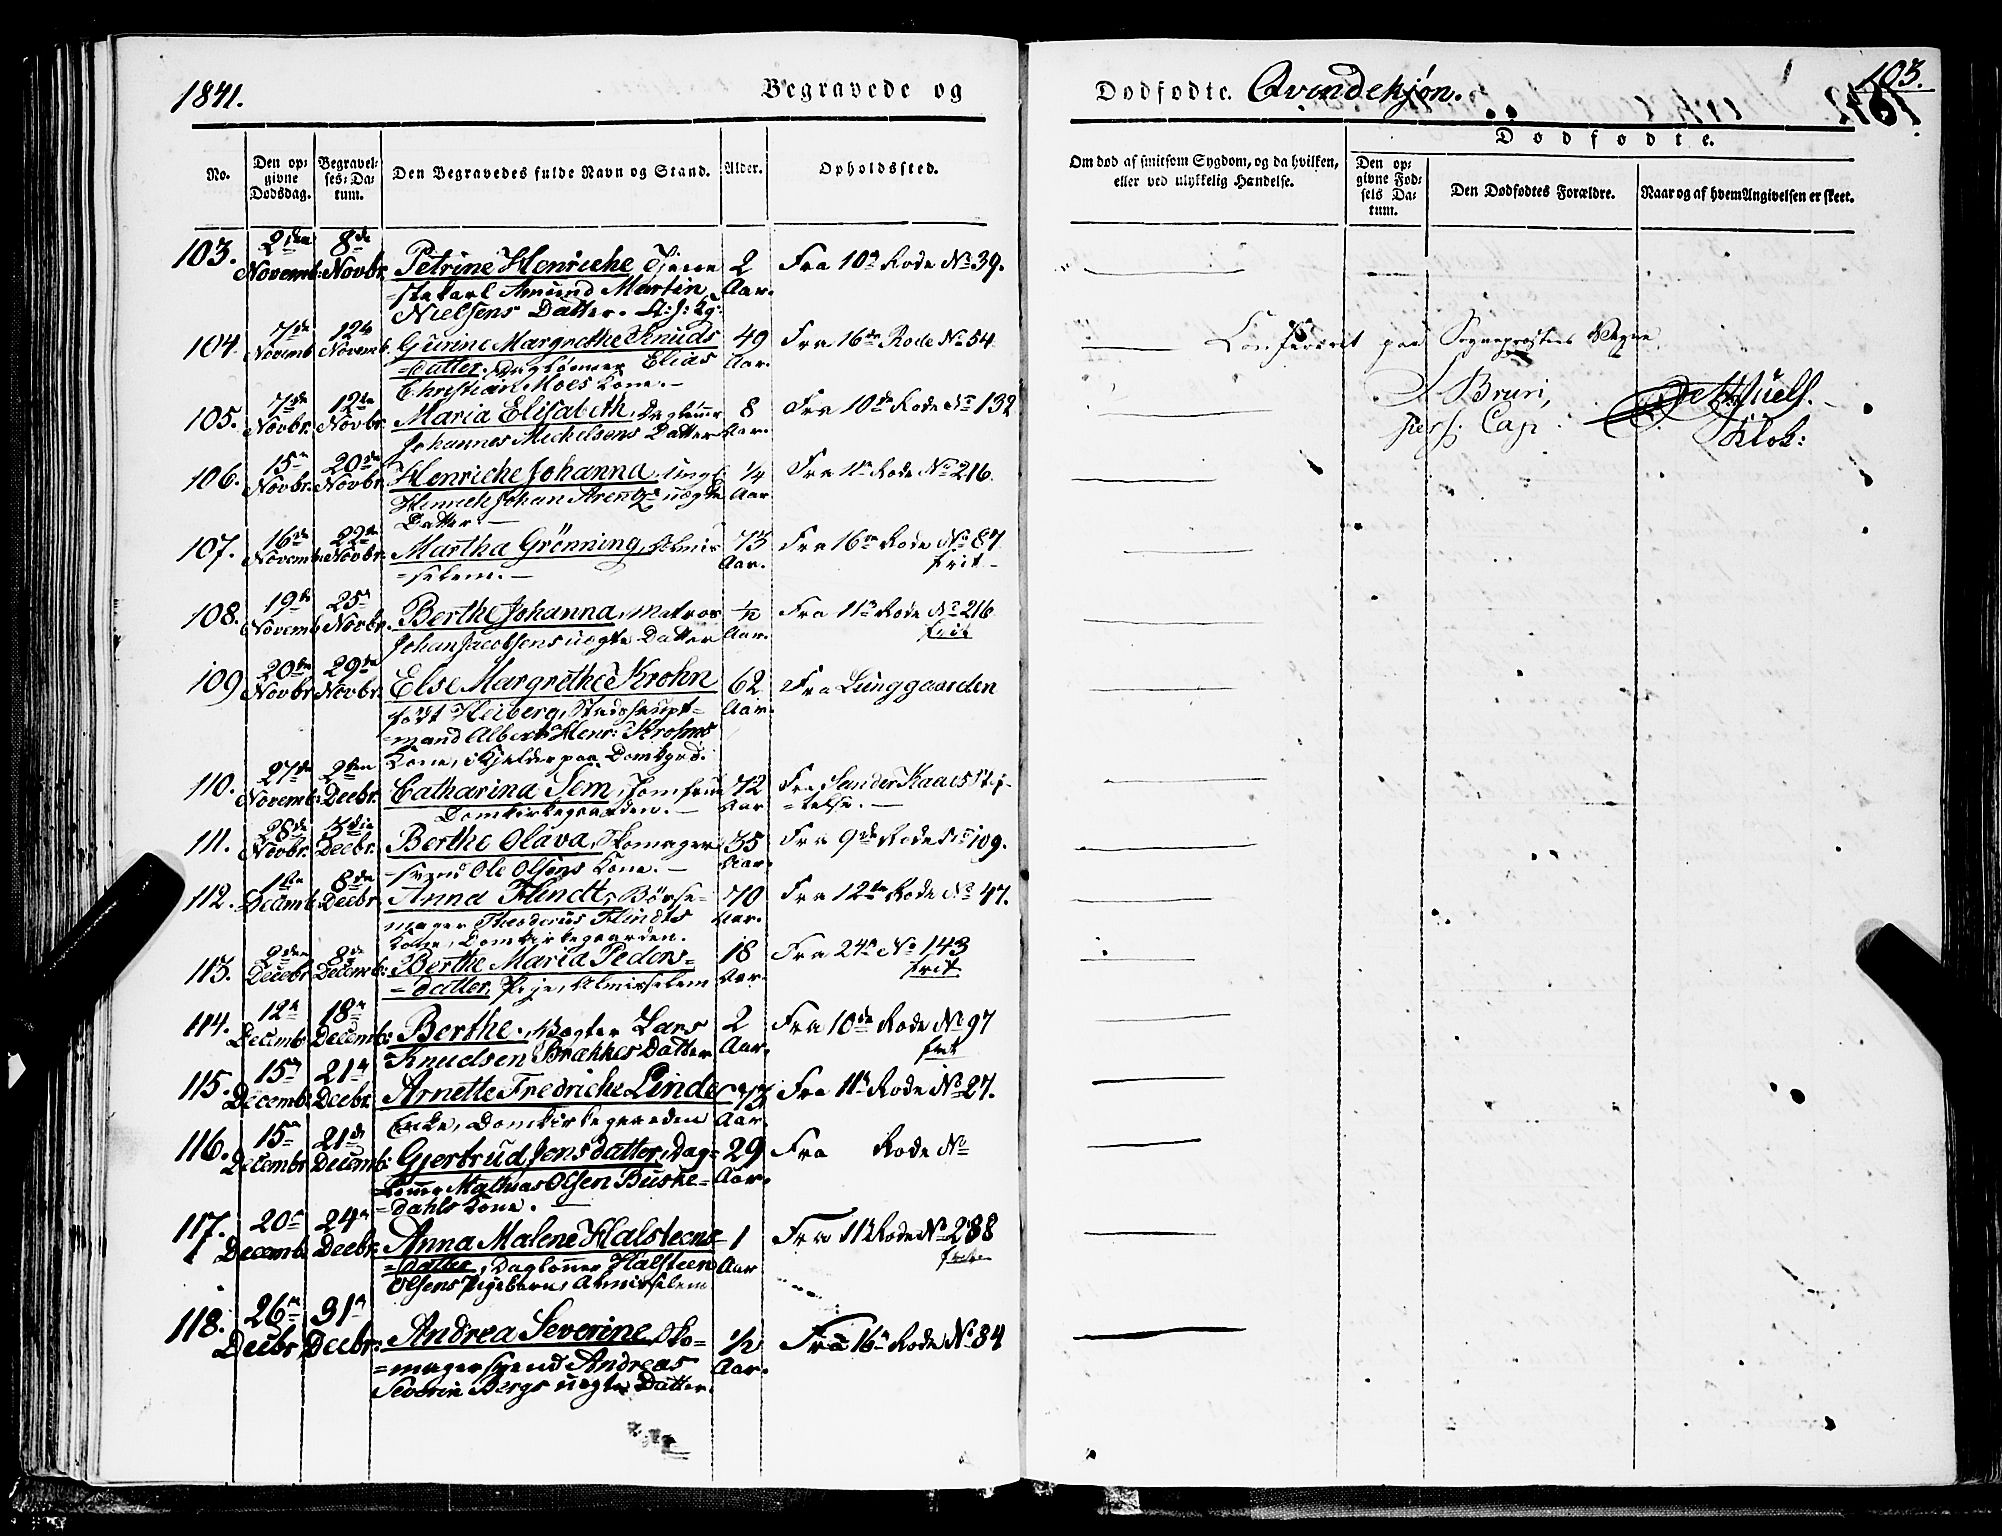 1841.
Begravede og
Dødfødte. Qvindekjøn.
103.
No.
Den opgivne Dødsdag.
Begravelses-Datum.
Den Begravedes fulde Navn og Stand.
Alder.
Opholdssted.
Om død af smitsom Sygdom, og da hvilken, eller ved ulykkelig Hændelse.
Dødfødte.
Den opgivne Fødsels Datum.
Den Dødfødtes Forældre.
Naar og af hvem Angivelsen er skeet.
103. 2den Novemb: 8de Novbr. Petrine Henriche, Tjene 2 Aar. Fra 10de Rode No 39.
=stekarl Amund Martin
Nielsens Datter.
104. 7de Novemb 12te Novemb. Gurine Margrethe Knuds 49 Aar. Fra 16de Rode No 54
=datter, Daglønner Elias
Christian Moes Kone.–
105. 7de Novbr. 12te Novbr. Maria Elisabeth, Daglønner 8 Aar. Fra 10de Rode No 132
Johannes Michelsens Datter
106. 15n Novbr. 20de Novbr. Henriche Johanna, Ungk 1/4 Aar Fra 11n Rode No 216
Henrich Johan Arentz uægte
Datter.–
107. 16de Novemb. 22de Novbr. Martha Grønning, Almis 73 Aar. Fra 16de Rode No 87
=selem.– frit
108. 19de Novemb 25n Novbr. Berthe Johanna, Matros 1/2 Aar. Fra 11n Rode No 216
Johan Jacobsens uægte Datter frit
109 20de Novbr 29de Novbr. Else Margrethe Krohn 62 Aar. Fra Lunggaarden
født Heiberg, Stadshaupt=
=mand Albert Henr: Krohns
Kone, i Kjelder paa Domkgrd.
110. 27de Novemb: 2den Decbr. Catharina Sem, Jomfru 72 Aar Fra Sander Kaaes Stif=
Domkirkegaarden.– =telse.–
111. 28de Novbr. 3die Decbr. Berthe Olava, Skomager 35 Aar. Fra 9de Rode No 109.
=svend Ole Olsens Kone.–
112. 1ste Decemb 8de Decbr. Anna Flindt, Børse= 70 Aar. Fra 12te Rode No 47.
mager Theodorus Flindts
Kone, Domkirkegaarden.
113. 2den Decbr 8de Decemb: Berthe Maria Peders= 18 Aar. Fra 24n No 143
=datter, Pige, Almisselem frit
114. 12n Decemb 18n Decemb: Berthe, Vægter Lars 2 Aar. Fra 10de Rode No 97
Knudsen Brækkes Datter frit
115. 15n Decemb: 21n Decbr. Arnette Fredriche Linde 73 Aar. Fra 11n Rode No 27.
Enke, Domkirkegaarden
116. 15n Decembr 21de Decemb: Gjertrud Jensdatter, Dag= 29 Aar. Fra Rode No
lønner Mathias Olsen Buske=
=dahls Kone.
117. 20n Decemb 24n Decbr: Anna Malene Halsteens= 1 Aar Fra 11n Rode No 288
=datter, Daglønner Halsteen frit
Olsens Pigebarn, Almisselem
118. 26n Decbr 31n Decbr: Andrea Severine, Sko= 1/2 Aar. Fra 16n Rode No 84
=magersvend Andreas
Severin Bergs uægte Datter.
Confereret paa Sogneprestens Vegne
J Brun,
pers. Cap.
Klok: